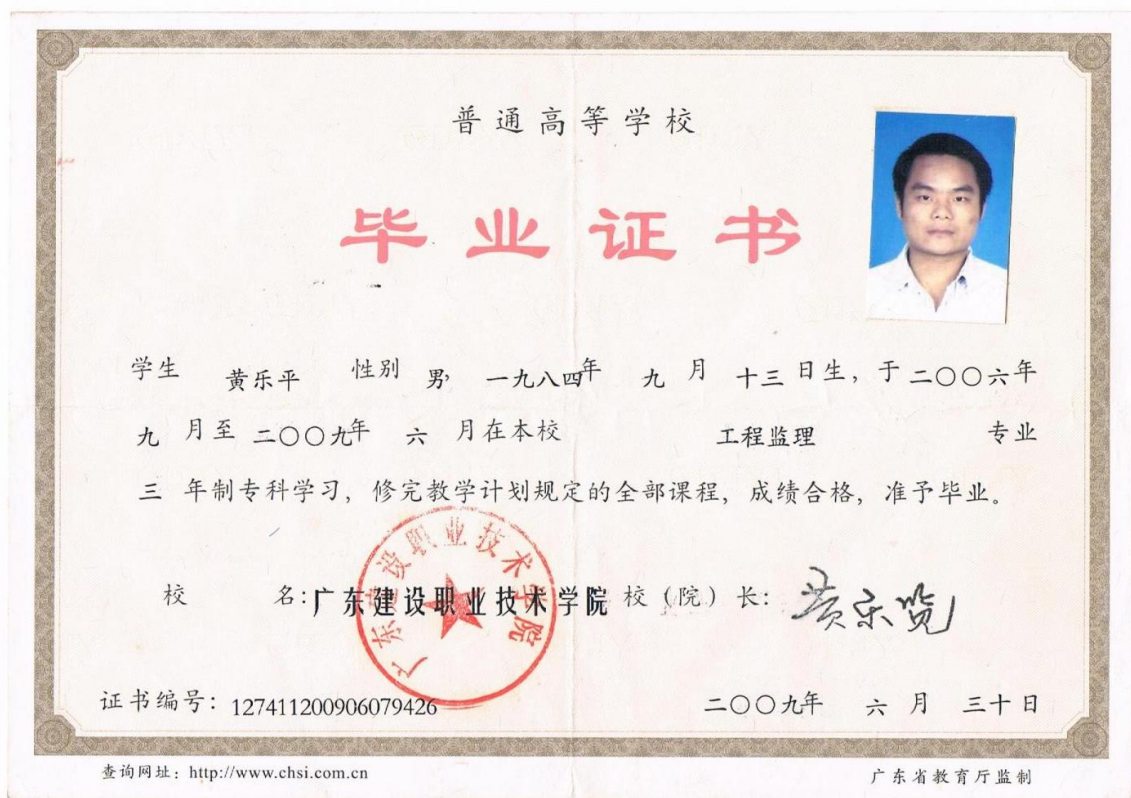 普通高等学校
毕业证书
学生 黄乐平 性别 男, 一九八四年 九 月 十三 日生，于 二〇〇六年
九 月至 二〇〇九年 六 月在本校 工程监理 专业
三 年制专科学习，修完教学计划规定的全部课程，成绩合格，准予毕业。
广东建设职业技术学院
校 名：广东建设职业技术学院 校（院）长：
证书编号：127411200906079426 二〇〇九年 六 月 三十 日
查询网址：http://www.chsi.com.cn 广东省教育厅监制